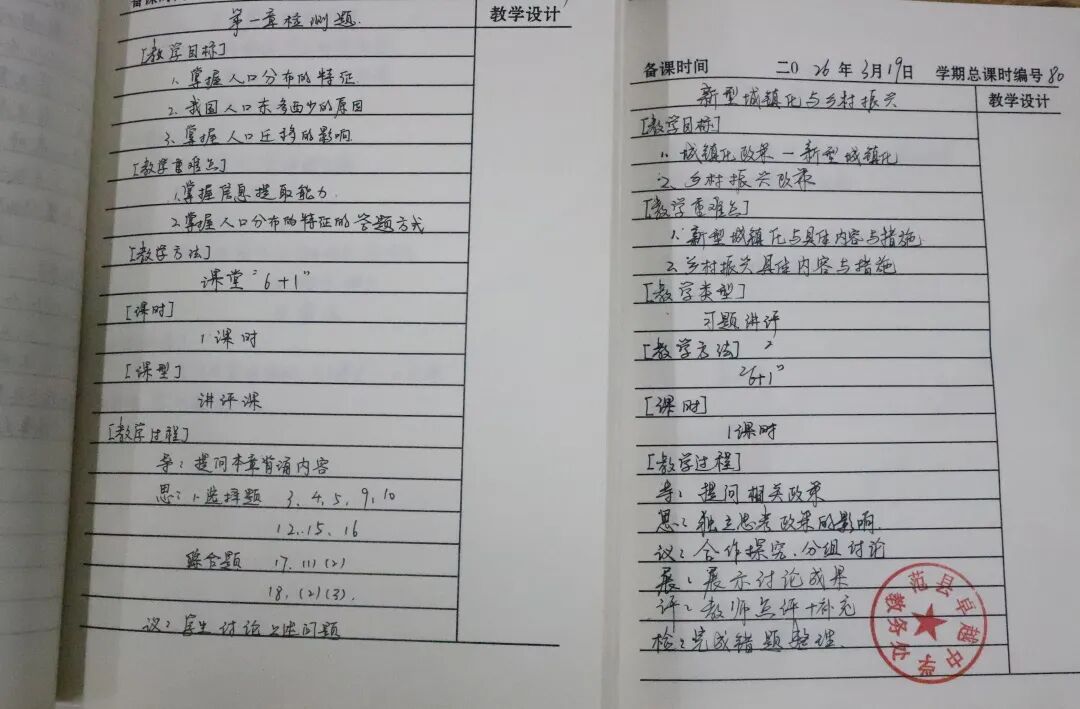 备课时间
教学设计
第一章检测题.
[教学目标]
1. 掌握人口分布的特征.
2. 我国人口东多西少的原因
3. 掌握人口迁移的影响.
[教学重难点]
1. 掌握信息提取能力.
2. 掌握人口分布的特征的答题方式
[教学方法]
课堂"6+1"
[课时]
1课时
[课型]
讲评课
[教学过程]
导: 提问本章背诵内容
思: 1. 选择题 3、4、5、9、10
12、15、16
综合题 17. (1)(2)
18. (2)(3).
议: 学生讨论上述问题
备课时间 二0 26 年 3月19日 学期总课时编号 80
新型城镇化与乡村振兴
教学设计
[教学目标]
1. 城镇化政策—新型城镇化
2. 乡村振兴政策
[教学重难点]
1. 新型城镇化与具体内容与措施.
2. 乡村振兴具体内容与措施
[教学类型]
习题讲评
[教学方法]
"6+1"
[课时]
1课时
[教学过程]
导: 提问相关政策
思: 独立思考政策的影响.
议: 合作探究、分组讨论
展: 展示讨论成果
评: 教师点评+补充
检: 完成错题整理.
范县卓越中学
教务处